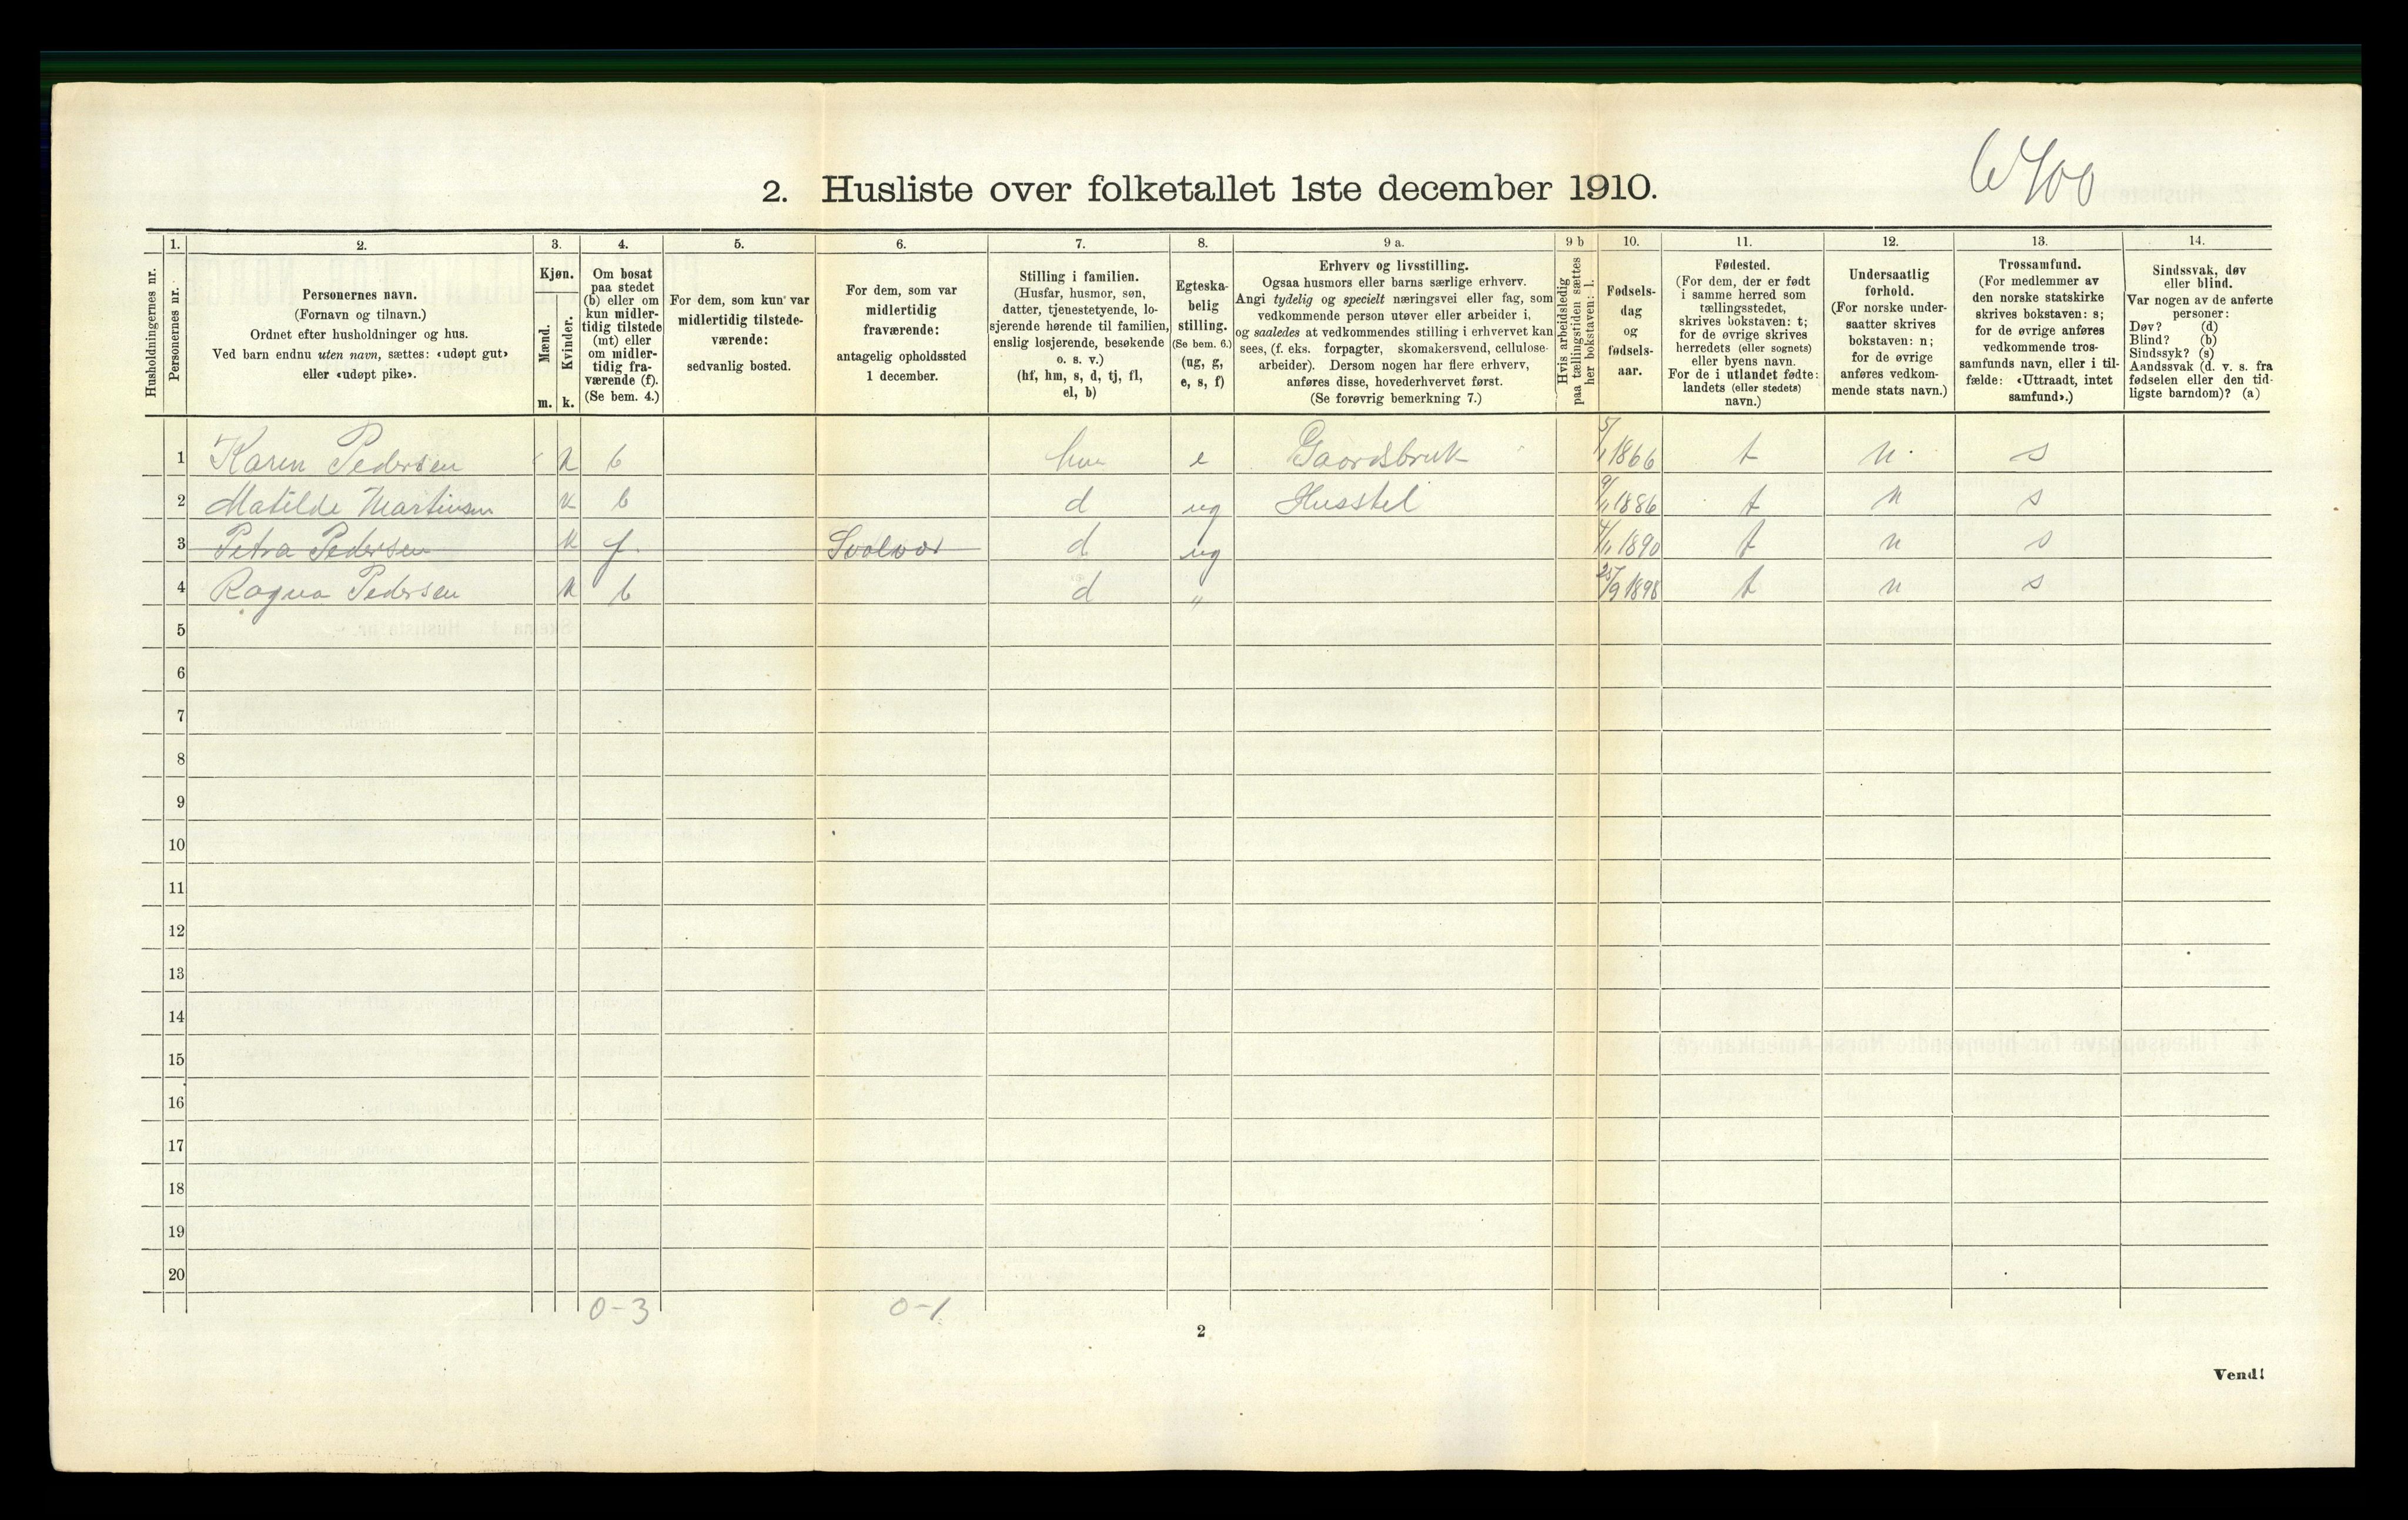 6400
2. Husliste over folketallet 1ste december 1910.
Husholdningernes nr.
1.
Personernes nr.
2.
Personernes navn.
(Fornavn og tilnavn.)
Ordnet efter husholdninger og hus.
Ved barn endnu uten navn, sættes: «udøpt gut»
eller «udøpt pike».
3.
Kjøn.
Mænd.
Kvinder.
m. k.
4.
Om bosat
paa stedet
(b) eller om
kun midler-
tidig tilstede
(mt) eller
om midler-
tidig fra-
værende (f).
(Se bem. 4.)
5.
For dem, som kun var
midlertidig tilstede-
værende:
sedvanlig bosted.
6.
For dem, som var
midlertidig
fraværende:
antagelig opholdssted
1 december.
7.
Stilling i familien.
(Husfar, husmor, søn,
datter, tjenestetyende, lo-
sjerende hørende til familien,
enslig losjerende, besøkende
o. s. v.)
(hf, hm, s, d, tj, fl,
el, b)
8.
Egteska-
belig
stilling.
(Se bem. 6.)
(ug, g,
e, s, f)
9 a.
Erhverv og livsstilling.
Ogsaa husmors eller barns særlige erhverv.
Angi tydelig og specielt næringsvei eller fag, som
vedkommende person utøver eller arbeider i,
og saaledes at vedkommendes stilling i erhvervet kan
sees, (f. eks. forpagter, skomakersvend, cellulose-
arbeider). Dersom nogen har flere erhverv,
anføres disse, hovederhvervet først.
(Se forøvrig bemerkning 7.)
9 b
Hvis arbeidsledig
paa tællingstiden sættes
her bokstaven: l.
10.
Fødsels-
dag
og
fødsels-
aar.
11.
Fødested.
(For dem, der er født
i samme herred som
tællingsstedet,
skrives bokstaven: t;
for de øvrige skrives
herredets (eller sognets)
eller byens navn.
For de i utlandet fødte:
landets (eller stedets)
navn.)
12.
Undersaatlig
forhold.
(For norske under-
saatter skrives
bokstaven: n;
for de øvrige
anføres vedkom-
mende stats navn.)
13.
Trossamfund.
(For medlemmer av
den norske statskirke
skrives bokstaven: s;
for de øvrige anføres
vedkommende tros-
samfunds navn, eller i til-
fælde: «Uttraadt, intet
samfund».)
14.
Sindssvak, døv
eller blind.
Var nogen av de anførte
personer:
Døv? (d)
Blind? (b)
Sindssyk? (s)
Aandssvak (d. v. s. fra
fødselen eller den tid-
ligste barndom)? (a)
1 Karen Pedersen k b hm e Gaardsbruk 5/1 1866 t n s
2 Matilde Martinsen k b d ug Husstel 9/11 1886 t n s
3 Petra Pedersen k f. Svolvær d ug 4/11 1890 t n s
4 Ragna Pedersen k b d " 25/9 1898 t n s
5
6
7
8
9
10
11
12
13
14
15
16
17
18
19
20
0-3 0-1
2
Vend!